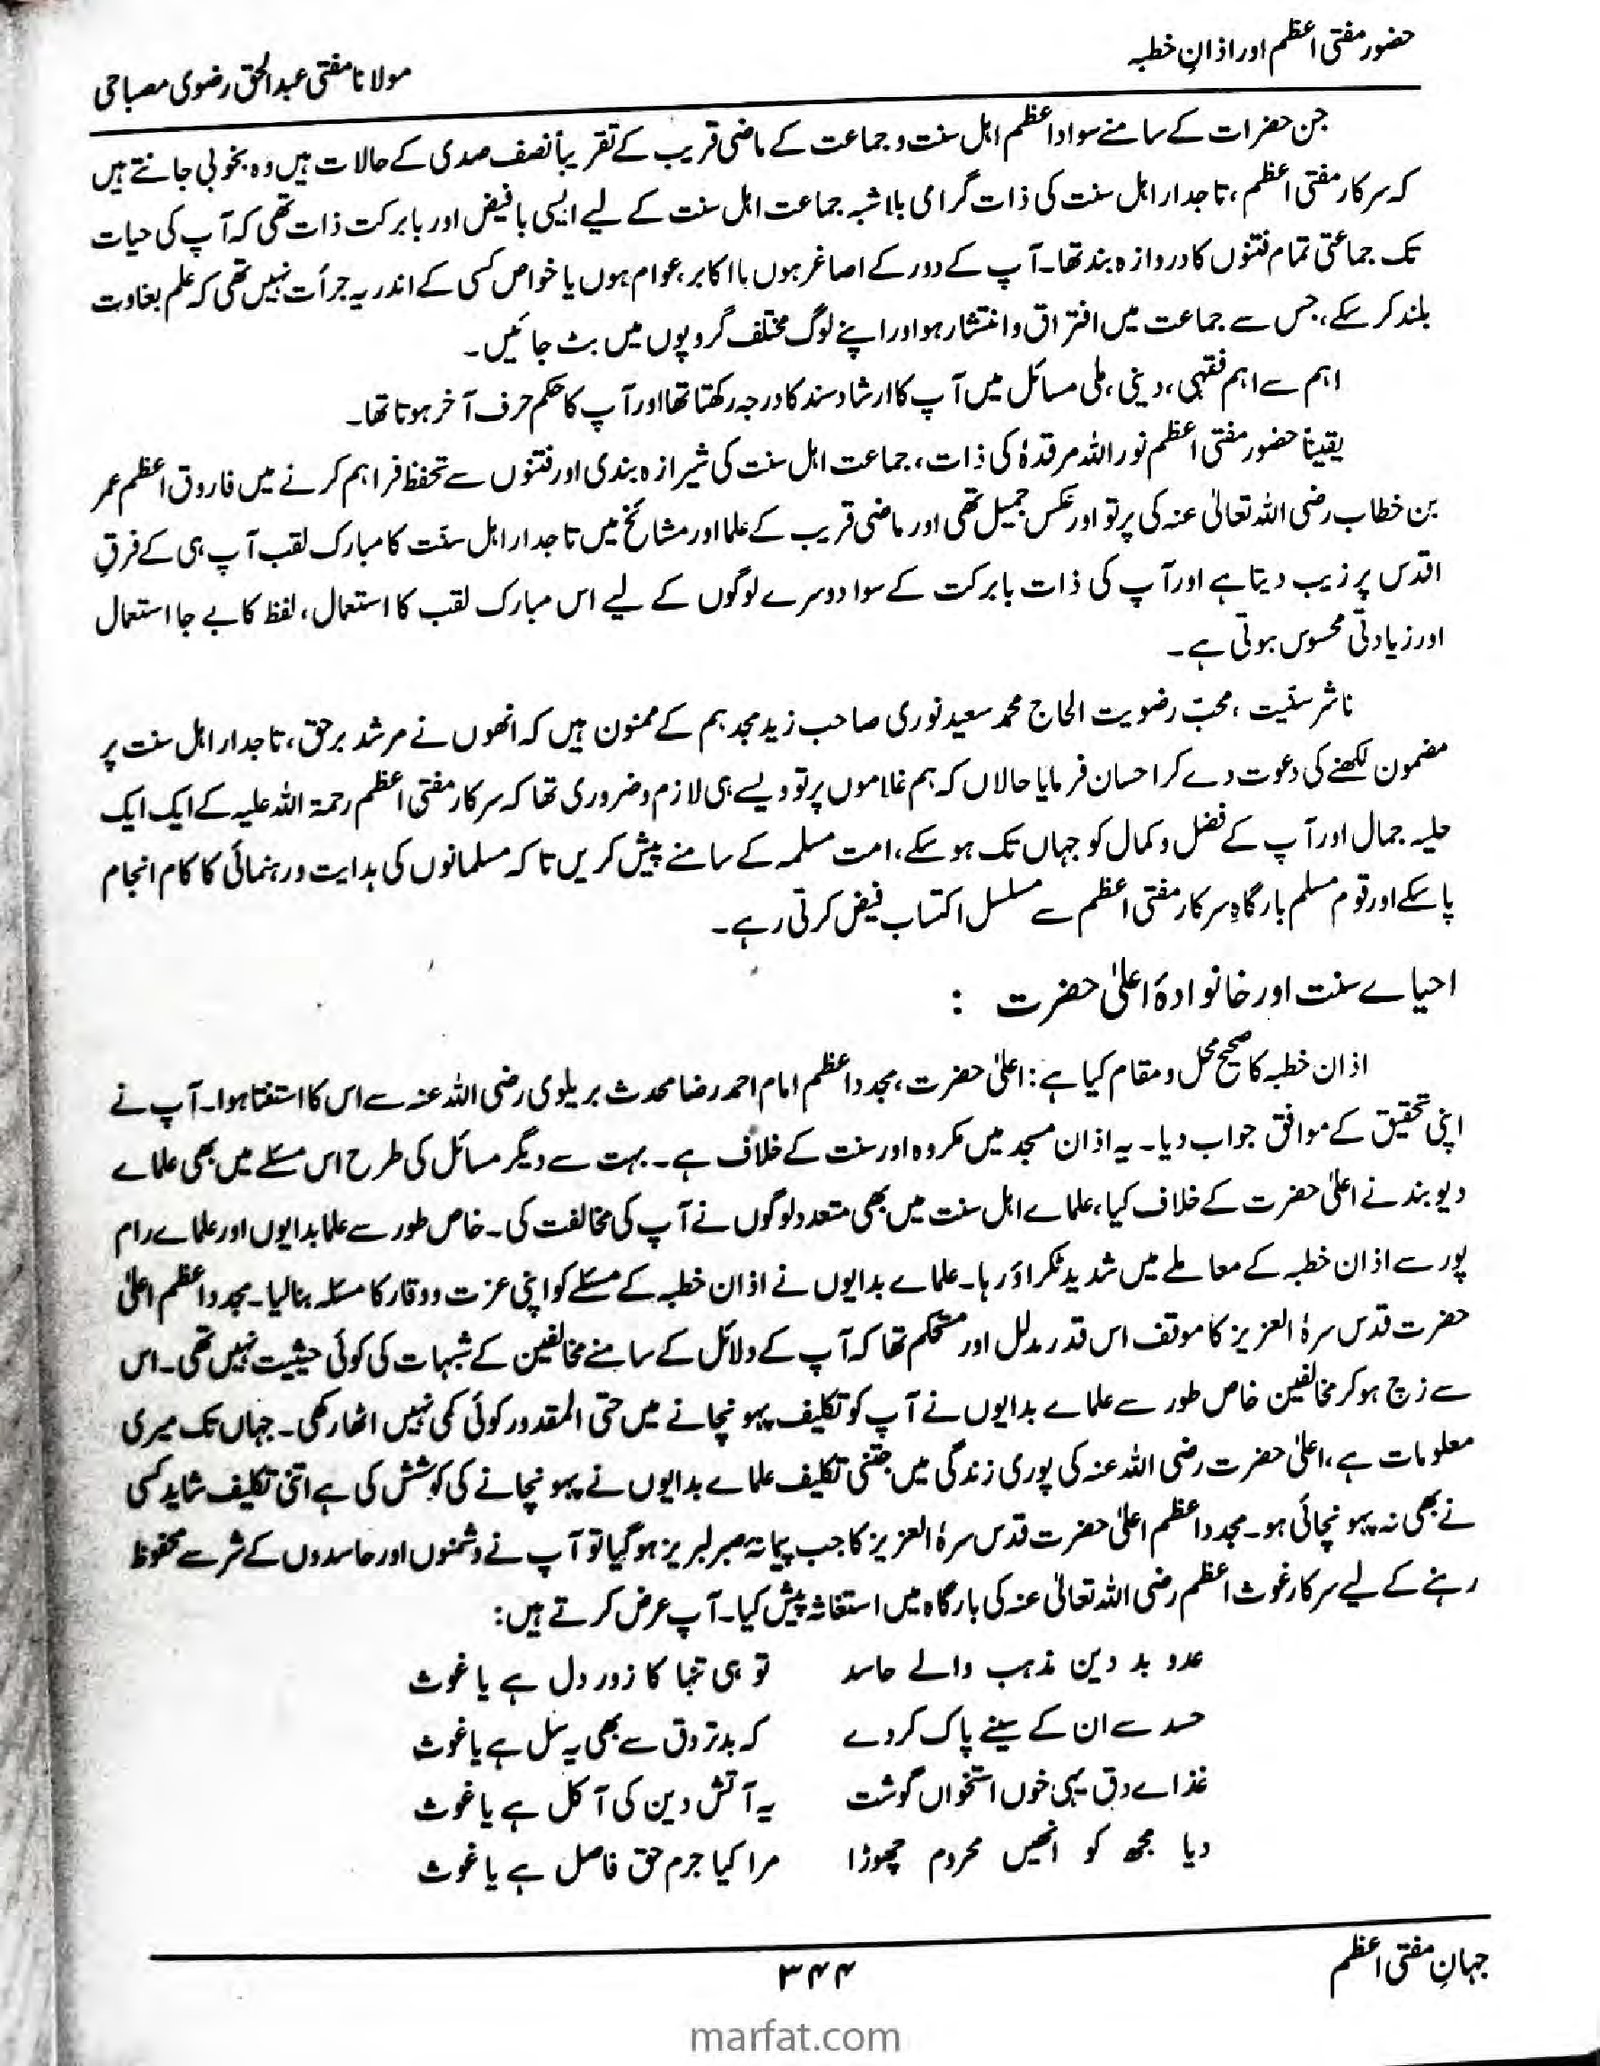 حضور مفتی اعظم اور اذانِ خطبہ
مولانا مفتی عبدالحق رضوی مصباحی
جن حضرات کے سامنے سواد اعظم اہل سنت و جماعت کے ماضی قریب کے تقریباً نصف صدی کے حالات ہیں وہ بخوبی جانتے ہیں
کہ سرکار مفتی اعظم، تاجدار اہل سنت کی ذات گرامی بلا شبہ جماعت اہل سنت کے لیے ایسی بافیض اور بابرکت ذات تھی کہ آپ کی حیات
تک جماعتی تمام فتنوں کا دروازہ بند تھا۔ آپ کے دور کے اصاغر ہوں یا اکابر، عوام ہوں یا خواص کسی کے اندر یہ جرأت نہیں تھی کہ علم بغاوت
بلند کر سکے، جس سے جماعت میں افتراق و انتشار ہو اور اپنے لوگ مختلف گروپوں میں بٹ جائیں۔
اہم سے اہم فقہی، دینی، ملی مسائل میں آپ کا ارشاد سند کا درجہ رکھتا تھا اور آپ کا حکم حرف آخر ہوتا تھا۔
یقیناً حضور مفتی اعظم نور اللہ مرقدہٗ کی ذات، جماعت اہل سنت کی شیرازہ بندی اور فتنوں سے تحفظ فراہم کرنے میں فاروق اعظم عمر
بن خطاب رضی اللہ تعالیٰ عنہ کی پرتو اور عکس جمیل تھی اور ماضی قریب کے علما اور مشائخ میں تاجدار اہل سنّت کا مبارک لقب آپ ہی کے فرقِ
اقدس پر زیب دیتا ہے اور آپ کی ذات بابرکت کے سوا دوسرے لوگوں کے لیے اس مبارک لقب کا استعمال، لفظ کا بے جا استعمال
اور زیادتی محسوس ہوتی ہے۔
ناشر سنّیت، محبّ رضویت الحاج محمد سعید نوری صاحب زید مجدہم کے ممنون ہیں کہ انھوں نے مرشد برحق، تاجدار اہل سنت پر
مضمون لکھنے کی دعوت دے کر احسان فرمایا حالاں کہ ہم غلاموں پر تو ویسے ہی لازم و ضروری تھا کہ سرکار مفتی اعظم رحمۃ اللہ علیہ کے ایک ایک
حلیہ جمال اور آپ کے فضل و کمال کو جہاں تک ہو سکے، امت مسلمہ کے سامنے پیش کریں تاکہ مسلمانوں کی ہدایت و رہنمائی کا کام انجام
پا سکے اور قوم مسلم بارگاہِ سرکار مفتی اعظم سے مسلسل اکتساب فیض کرتی رہے۔
احیاے سنت اور خانوادۂ اعلیٰ حضرت :
اذان خطبہ کا صحیح محل و مقام کیا ہے: اعلیٰ حضرت، مجدد اعظم امام احمد رضا محدث بریلوی رضی اللہ عنہ سے اس کا استفتا ہوا۔ آپ نے
اپنی تحقیق کے موافق جواب دیا۔ یہ اذان مسجد میں مکروہ اور سنت کے خلاف ہے۔ بہت سے دیگر مسائل کی طرح اس مسئلے میں بھی علماے
دیوبند نے اعلیٰ حضرت کے خلاف کیا، علماے اہل سنت میں بھی متعدد لوگوں نے آپ کی مخالفت کی۔ خاص طور سے علما بدایوں اور علماے رام
پور سے اذان خطبہ کے معاملے میں شدید ٹکراؤ رہا۔ علماے بدایوں نے اذان خطبہ کے مسئلے کو اپنی عزت و وقار کا مسئلہ بنا لیا۔ مجدد اعظم اعلیٰ
حضرت قدس سرۂ العزیز کا موقف اس قدر مدلل اور مستحکم تھا کہ آپ کے دلائل کے سامنے مخالفین کے شبہات کی کوئی حیثیت نہیں تھی۔ اس
سے زچ ہو کر مخالفین خاص طور سے علماے بدایوں نے آپ کو تکلیف پہونچانے میں حتی المقدور کوئی کمی نہیں اٹھا رکھی۔ جہاں تک میری
معلومات ہے، اعلیٰ حضرت رضی اللہ عنہ کی پوری زندگی میں جتنی تکلیف علماے بدایوں نے پہونچانے کی کوشش کی ہے اتنی تکلیف شاید کسی
نے بھی نہ پہونچائی ہو۔ مجدد اعظم اعلیٰ حضرت قدس سرۂ العزیز کا جب پیمانۂ صبر لبریز ہو گیا تو آپ نے دشمنوں اور حاسدوں کے شر سے محفوظ
رہنے کے لیے سرکار غوث اعظم رضی اللہ تعالیٰ عنہ کی بارگاہ میں استغاثہ پیش کیا۔ آپ عرض کرتے ہیں:
عدو بد دین مذہب والے حاسد تو ہی تنہا کا زور دل ہے یا غوث
حسد سے ان کے سینے پاک کر دے کہ بدتر دق سے بھی یہ سل ہے یا غوث
غذاے دق یہی خوں استخواں گوشت یہ آتش دین کی آکل ہے یا غوث
دیا مجھ کو انھیں محروم چھوڑا مرا کیا جرم حق فاصل ہے یا غوث
جہانِ مفتی اعظم
۳۴۴
marfat.com